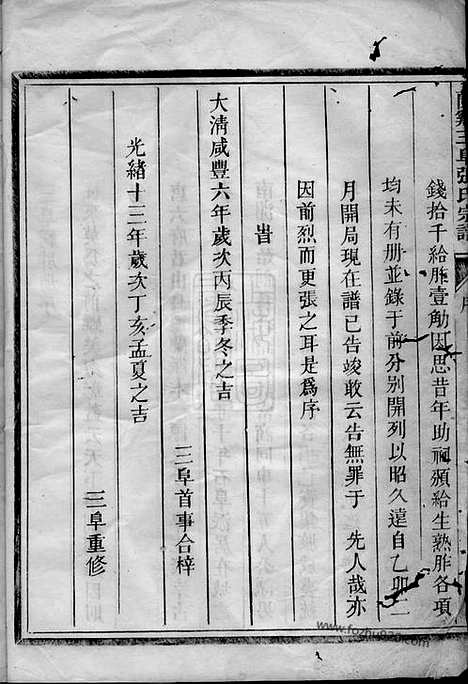 錢拾千給胙壹觔因思昔年助祠頒給生熟胙各項
均未有册並錄于前分別開列以昭久遠自乙卯二
月開局現在譜已告竣敢云告無罪于 先人哉亦
因前烈而更張之耳是爲序
旹
大清咸豐六年歲次丙辰季冬之吉
三阜首事合梓
光緒十三年歲次丁亥孟夏之吉
三阜重修
www.fozhu920.com